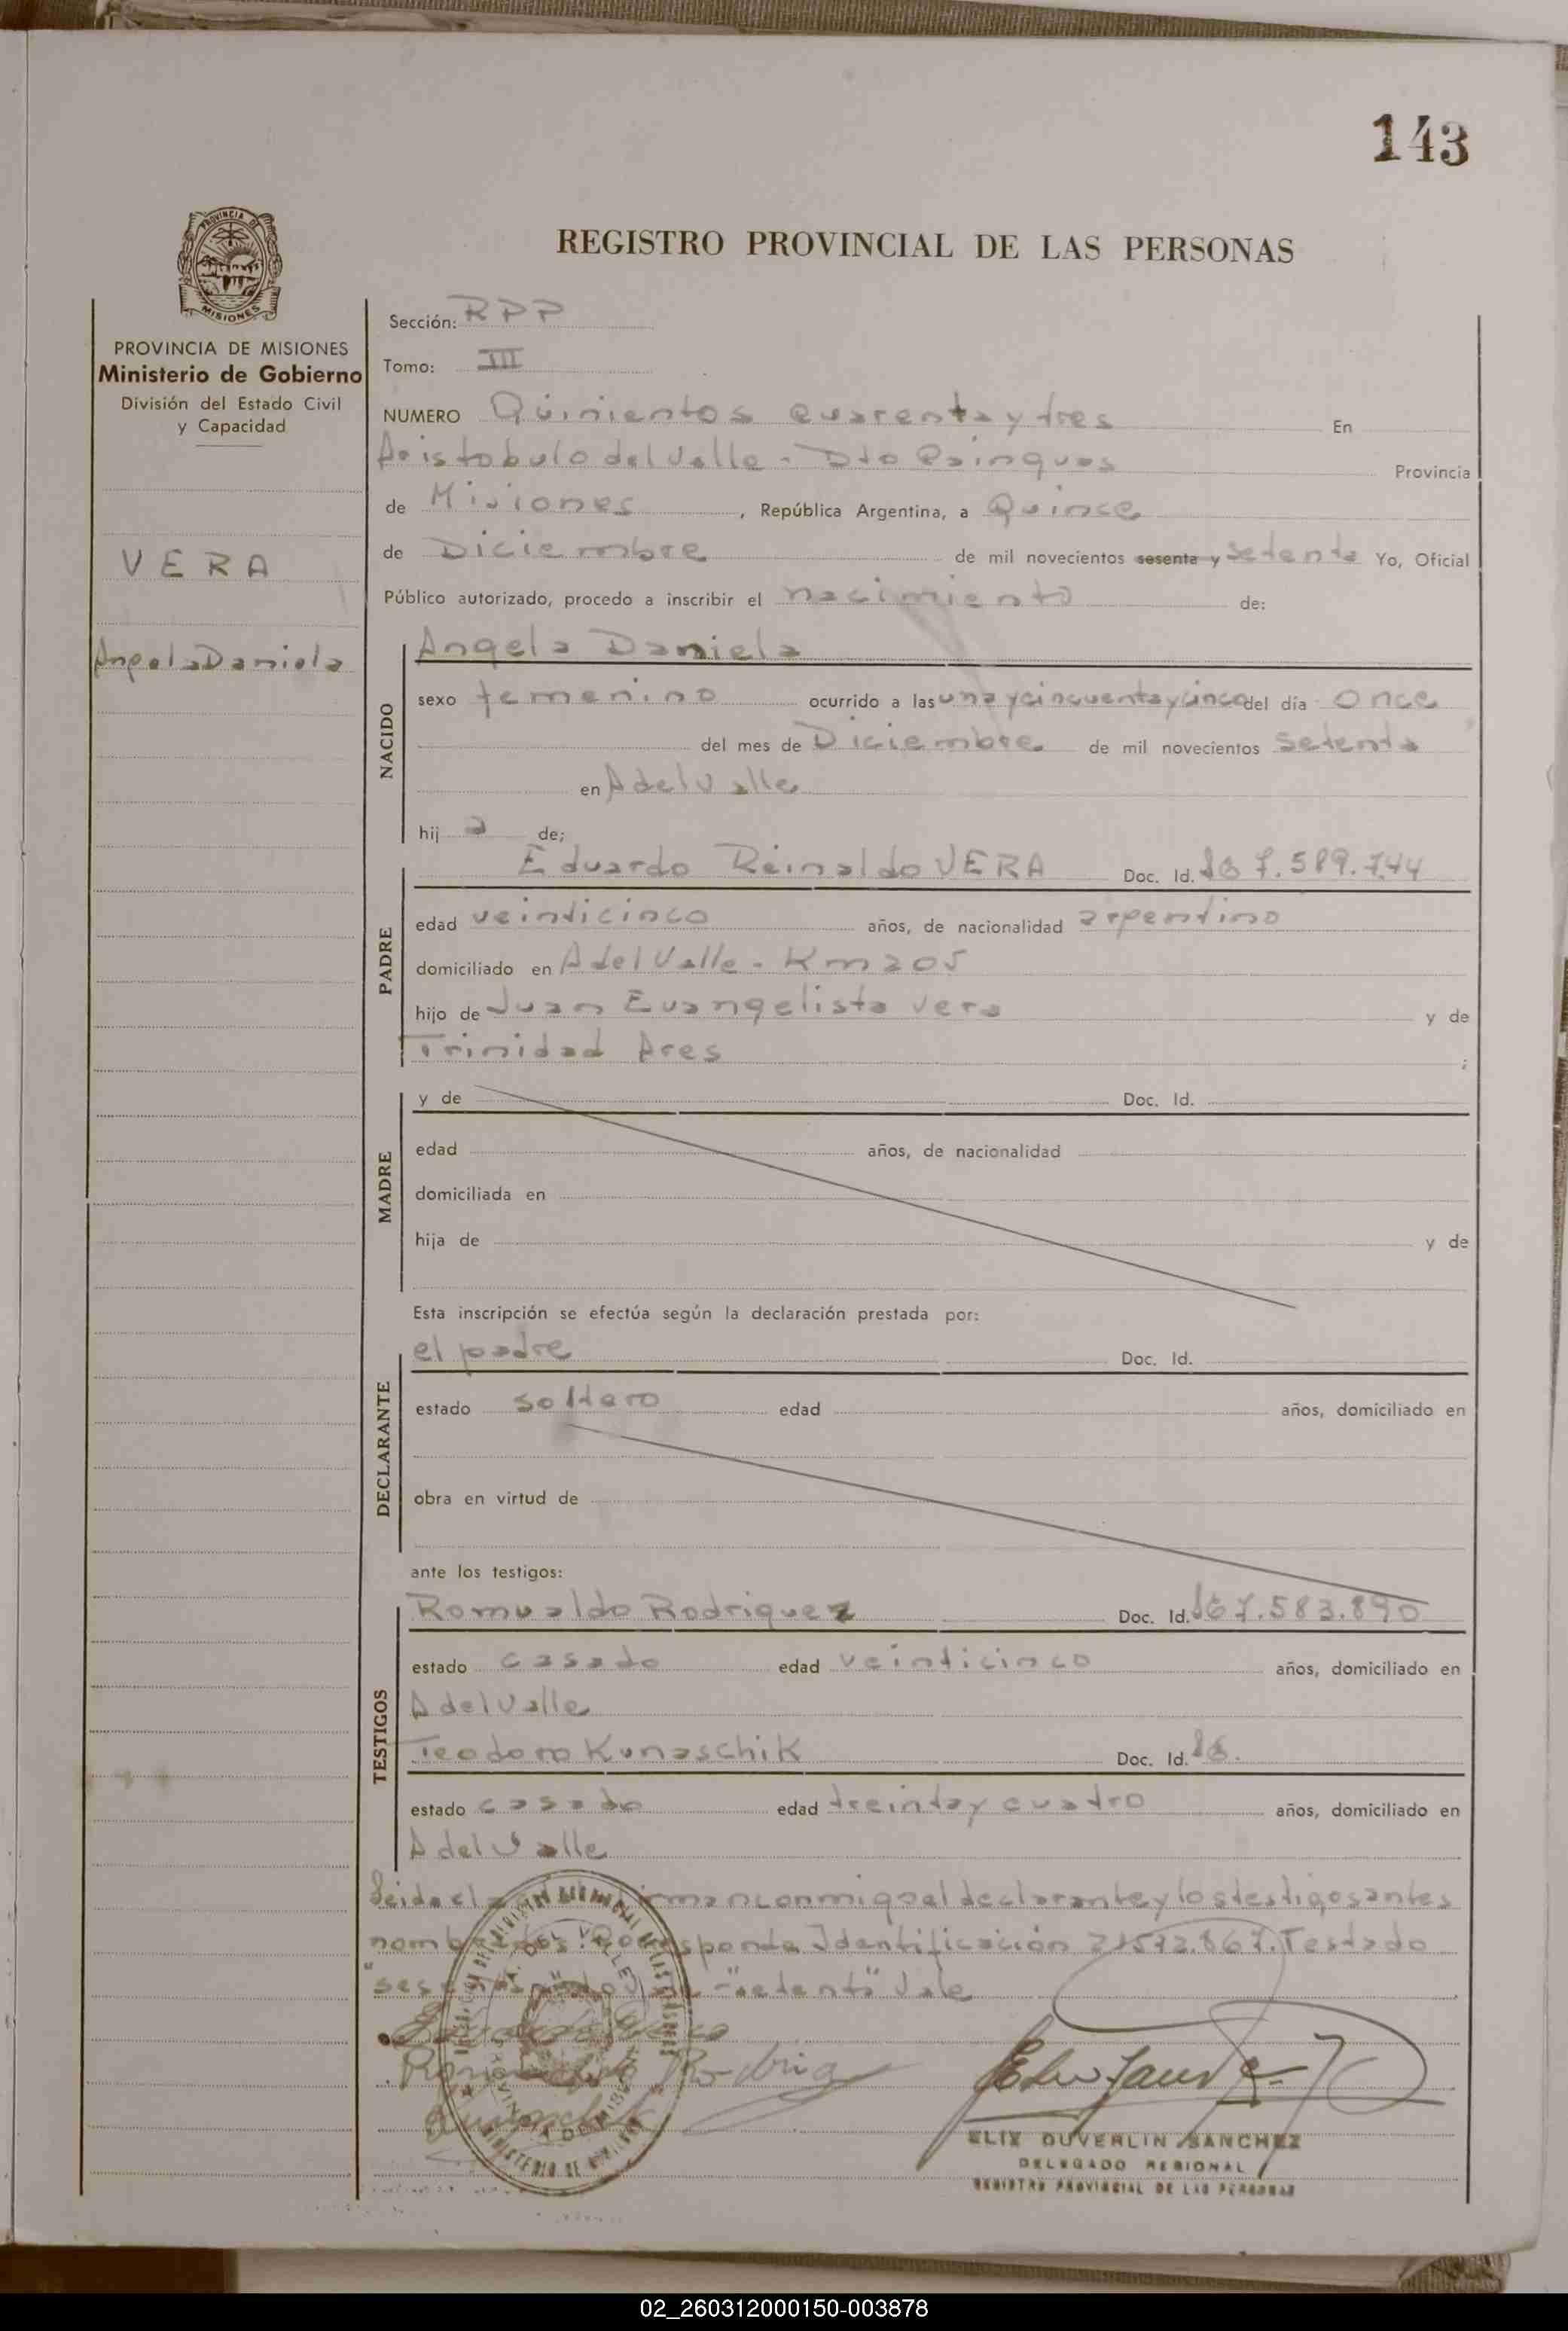 143
PROVINCIA DE
MISIONES
REGISTRO PROVINCIAL DE LAS PERSONAS
PROVINCIA DE MISIONES
Ministerio de Gobierno
División del Estado Civil
y Capacidad
VERA
Angela Daniela
Sección: RPP
Tomo: III
NUMERO Quinientos cuarenta y tres En
Aristobulo del Valle - Dto Cainguas Provincia
de Misiones, República Argentina, a Quince
de Diciembre de mil novecientos sesenta y setenta Yo, Oficial
Público autorizado, procedo a inscribir el nacimiento de:
NACIDO
Angela Daniela
sexo femenino ocurrido a las una y cincuenta y cinco del día once
del mes de Diciembre de mil novecientos setenta
en A del Valle
hij a de;
PADRE
Eduardo Reinaldo VERA Doc. Id. 7.589.744
edad veinticinco años, de nacionalidad argentino
domiciliado en A del Valle - Km 205
hijo de Juan Evangelista Vera y de
Trinidad Ares ;
MADRE
y de Doc. Id.
edad años, de nacionalidad
domiciliada en
hija de y de
Esta inscripción se efectúa según la declaración prestada por:
DECLARANTE
el padre Doc. Id.
estado soltero edad años, domiciliado en
obra en virtud de
ante los testigos:
TESTIGOS
Romualdo Rodriguez Doc. Id. 7.583.890
estado casado edad veinticinco años, domiciliado en
A del Valle
Teodoro Kunaschik Doc. Id.
estado casado edad treinta y cuatro años, domiciliado en
A del Valle
Leida el conmigo el declarante y los testigos antes
Identificación 21572.867. Testado
"setenta" Vale
Romualdo Rodrig
ELIX DUVERLIN SANCHEZ
DELEGADO REGIONAL
REGISTRO PROVINCIAL DE LAS PERSONAS
02_260312000150-003878